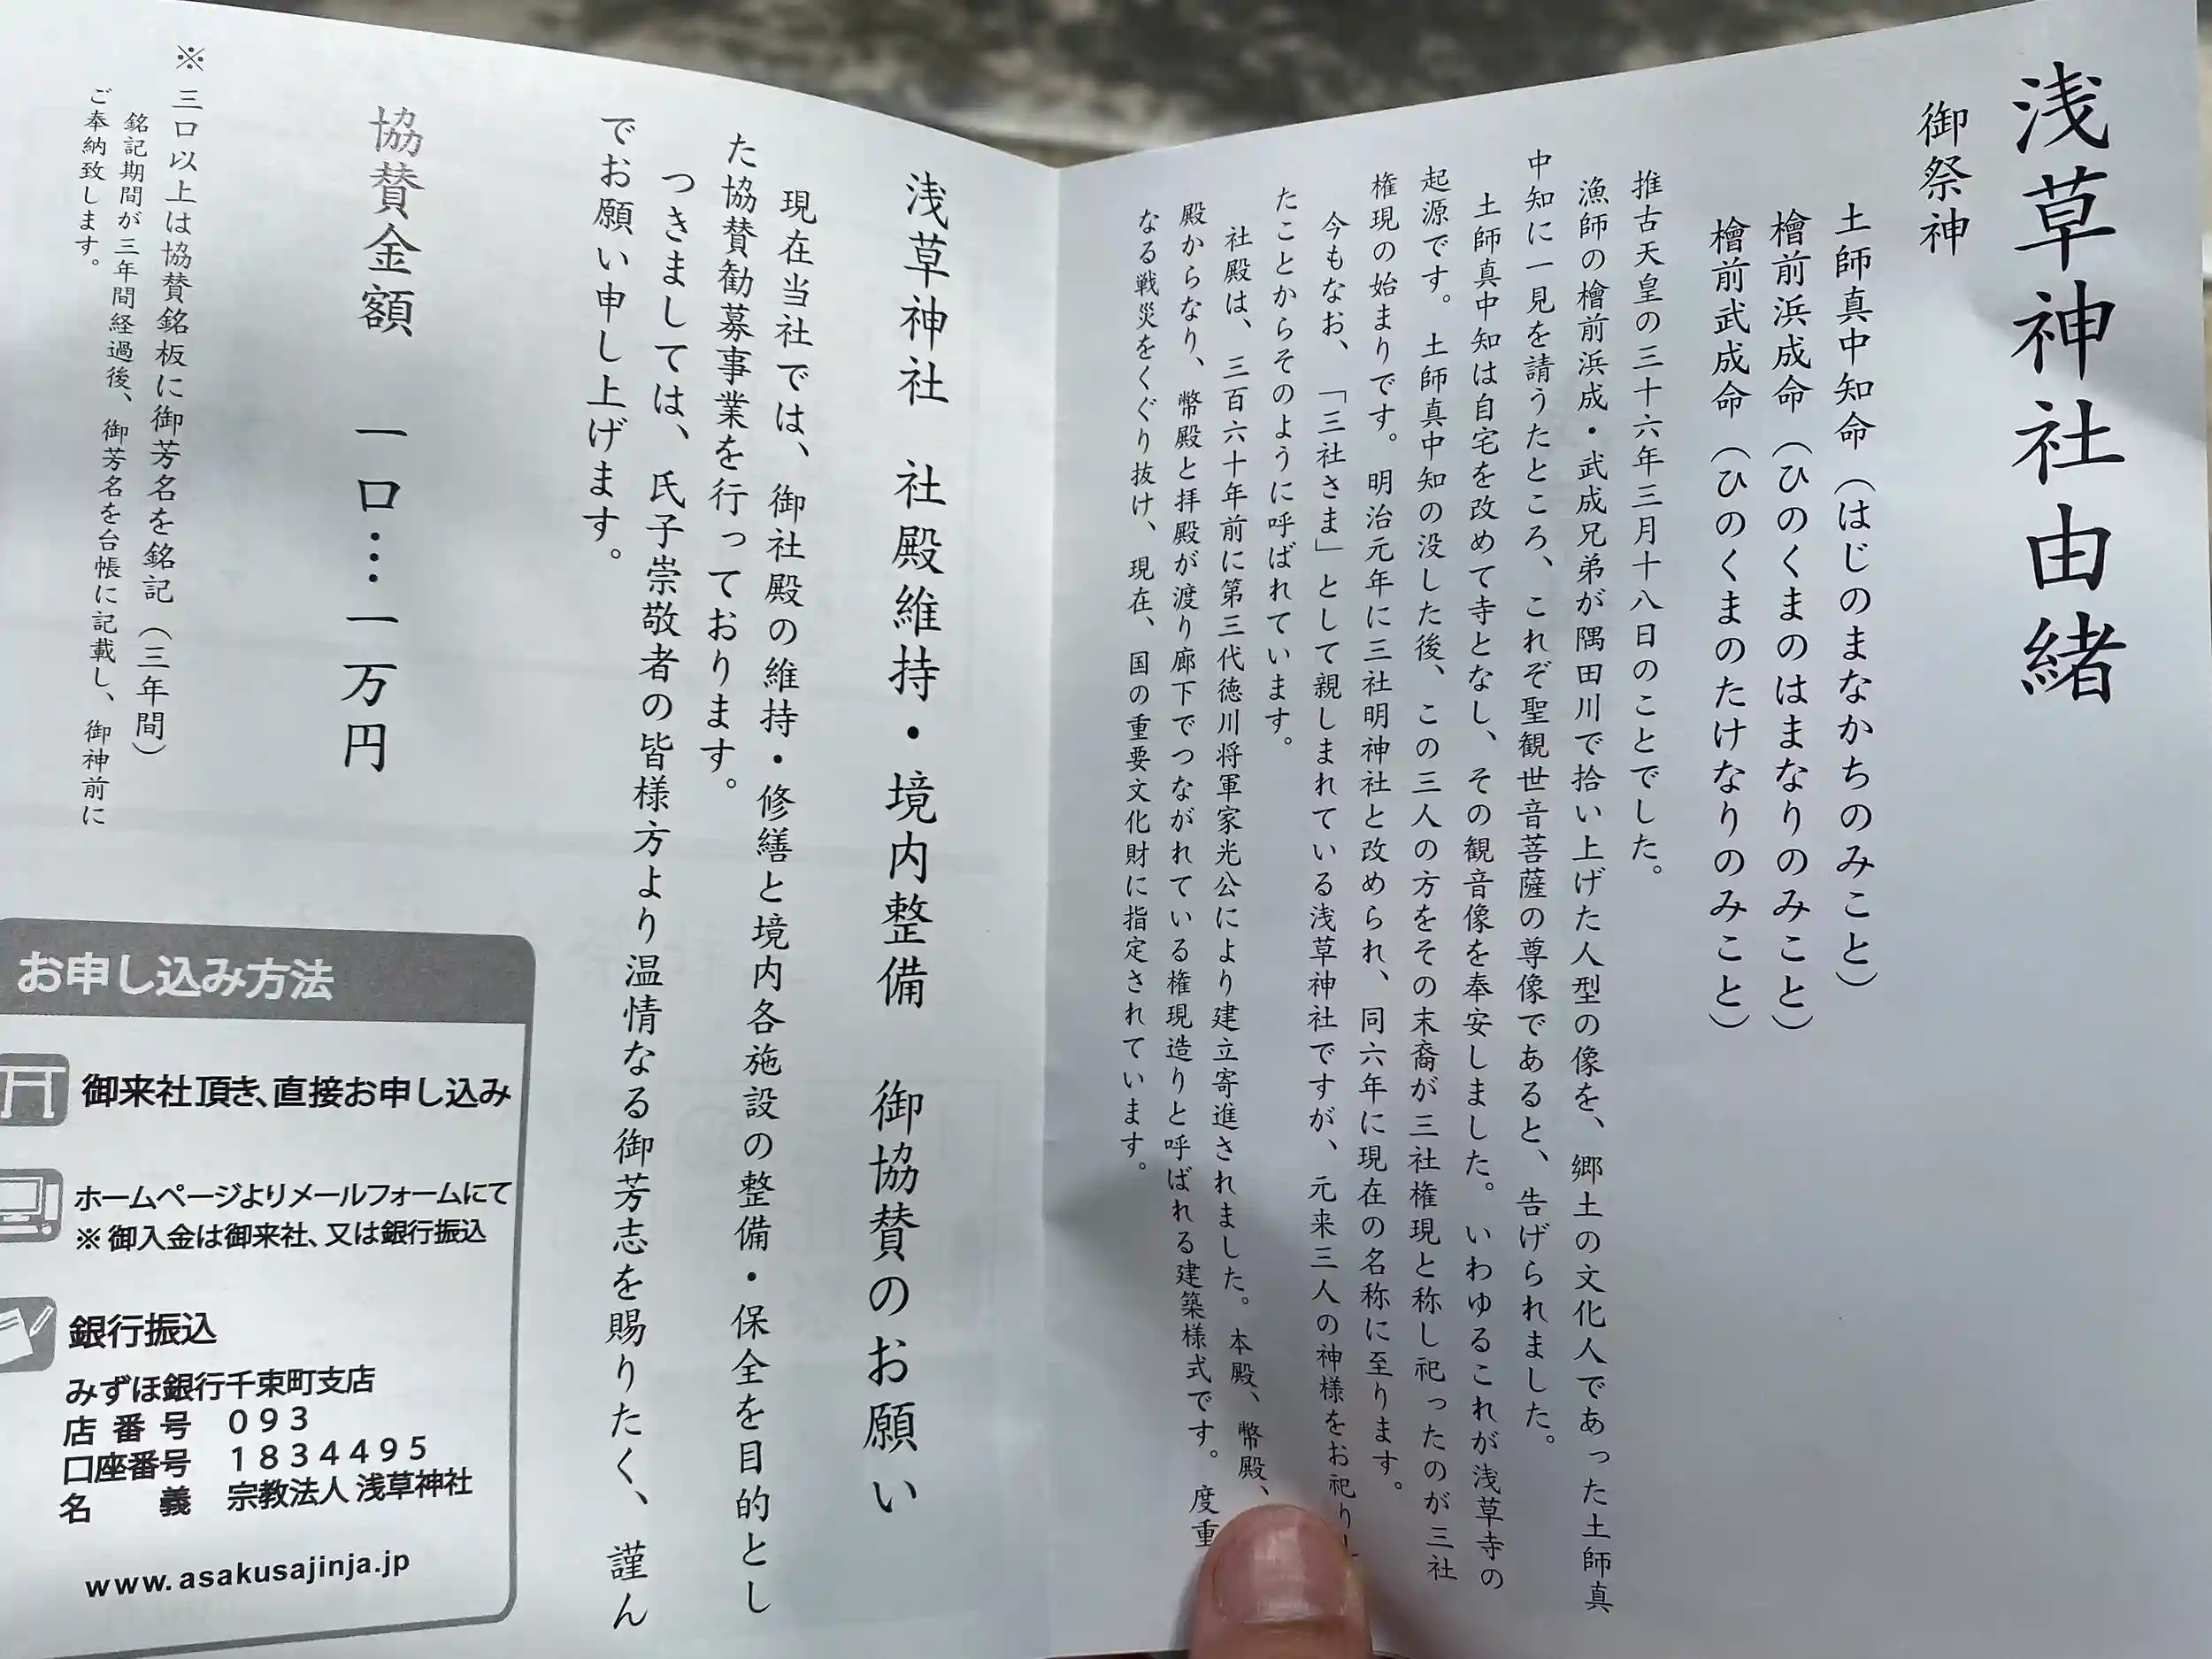 浅草神社由緒
御祭神
土師真中知命（はじのまなかちのみこと）
檜前浜成命（ひのくまのはまなりのみこと）
檜前武成命（ひのくまのたけなりのみこと）
推古天皇の三十六年三月十八日のことでした。
漁師の檜前浜成・武成兄弟が隅田川で拾い上げた人型の像を、郷土の文化人であった土師真
中知に一見を請うたところ、これぞ聖観世音菩薩の尊像であると、告げられました。
土師真中知は自宅を改めて寺となし、その観音像を奉安しました。いわゆるこれが浅草寺の
起源です。土師真中知の没した後、この三人の方をその末裔が三社権現と称し祀ったのが三社
権現の始まりです。明治元年に三社明神社と改められ、同六年に現在の名称に至ります。
今もなお、「三社さま」として親しまれている浅草神社ですが、元来三人の神様をお祀り
たことからそのように呼ばれています。
社殿は、三百六十年前に第三代徳川将軍家光公により建立寄進されました。本殿、幣殿、
殿からなり、幣殿と拝殿が渡り廊下でつながれている権現造りと呼ばれる建築様式です。度重
なる戦災をくぐり抜け、現在、国の重要文化財に指定されています。
浅草神社　社殿維持・境内整備　御協賛のお願い
現在当社では、御社殿の維持・修繕と境内各施設の整備・保全を目的とし
た協賛勧募事業を行っております。
つきましては、氏子崇敬者の皆様方より温情なる御芳志を賜りたく、謹ん
でお願い申し上げます。
協賛金額　一口…一万円
※三口以上は協賛銘板に御芳名を銘記（三年間）
銘記期間が三年間経過後、御芳名を台帳に記載し、御神前に
ご奉納致します。
お申し込み方法
御来社頂き、直接お申し込み
ホームページよりメールフォームにて
※御入金は御来社、又は銀行振込
銀行振込
みずほ銀行千束町支店
店番号　０９３
口座番号　１８３４４９５
名義　宗教法人 浅草神社
www.asakusajinja.jp